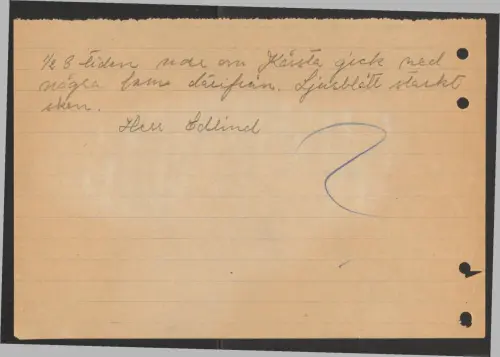 ½ 8 tiden norr om Kårsta gick ned
några barn därifrån. Ljusblått starkt
sken.
Herr Edlind